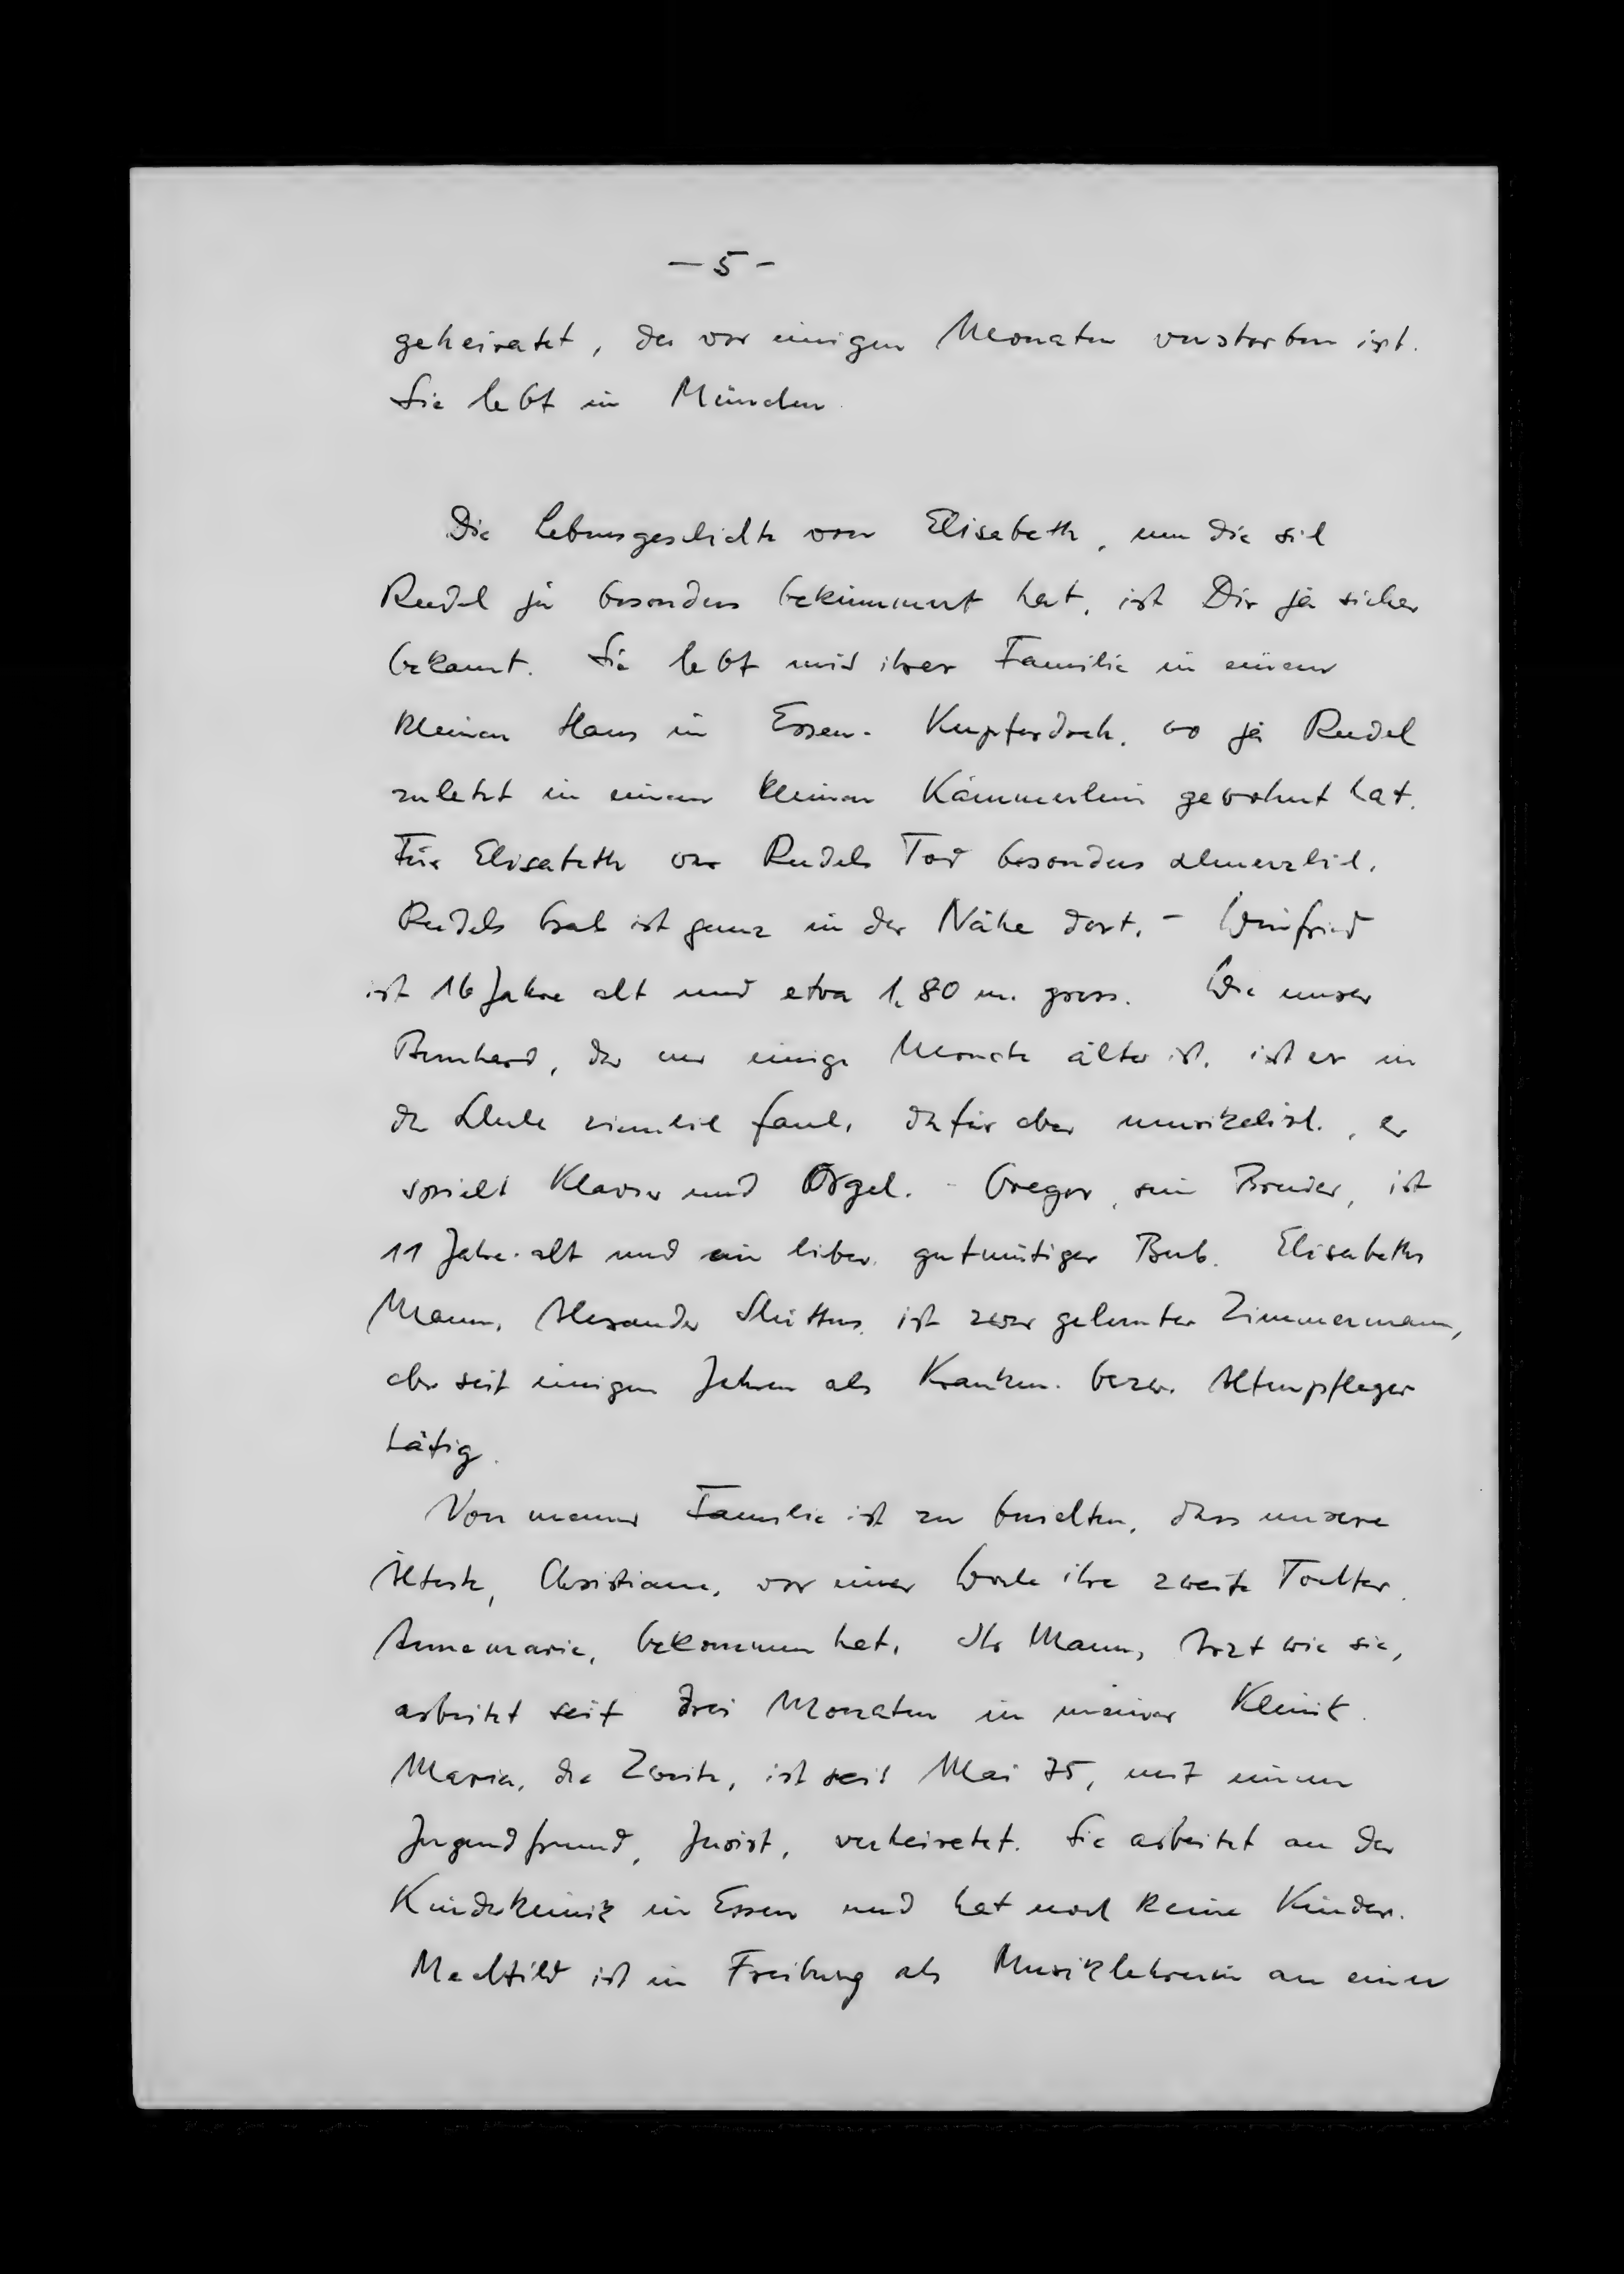 — 5 -
geheiratet, der vor einigen Monaten verstorben ist.
Sie lebt in München.
Die Lebensgeschichte von Elisabeth, um die sich
Rudel ja besonders bekümmert hat, ist Dir ja sicher
bekannt. Sie lebt mit ihrer Familie in einem
kleinen Haus in Essen-Kupferdreh, wo ja Rudel
zuletzt in einem kleinen Kämmerlein gewohnt hat.
Für Elisabeth war Rudels Tod besonders schmerzlich.
Rudels Grab ist ganz in der Nähe dort. - Winfried
ist 16 Jahre alt und etwa 1,80 m. gross. Wie unser
Bernhard, der nur einige Monate älter ist, ist er in
der Schule ziemlich faul, dafür aber musikalisch, er
spielt Klavier und Orgel. - Gregor, sein Bruder, ist
11 Jahre alt und ein lieber, gutmütiger Bub. Elisabeths
Mann, Alexander ist zwar gelernter Zimmermann,
aber seit einigen Jahren als Kranken- bezw. Altenpfleger
tätig.
Von meiner Familie ist zu berichten, dass unsere
Älteste, Christiane, vor einer Woche ihre zweite Tochter,
Annemarie, bekommen hat. Ihr Mann, Arzt wie sie,
arbeitet seit drei Monaten in meiner Klinik.
Maria, die Zweite, ist seit Mai 75, mit einem
Jugendfreund, Jurist, verheiratet. Sie arbeitet an der
Kinderklinik in Essen und hat noch keine Kinder.
Mechtild ist in Freiburg als Musiklehrerin an einer